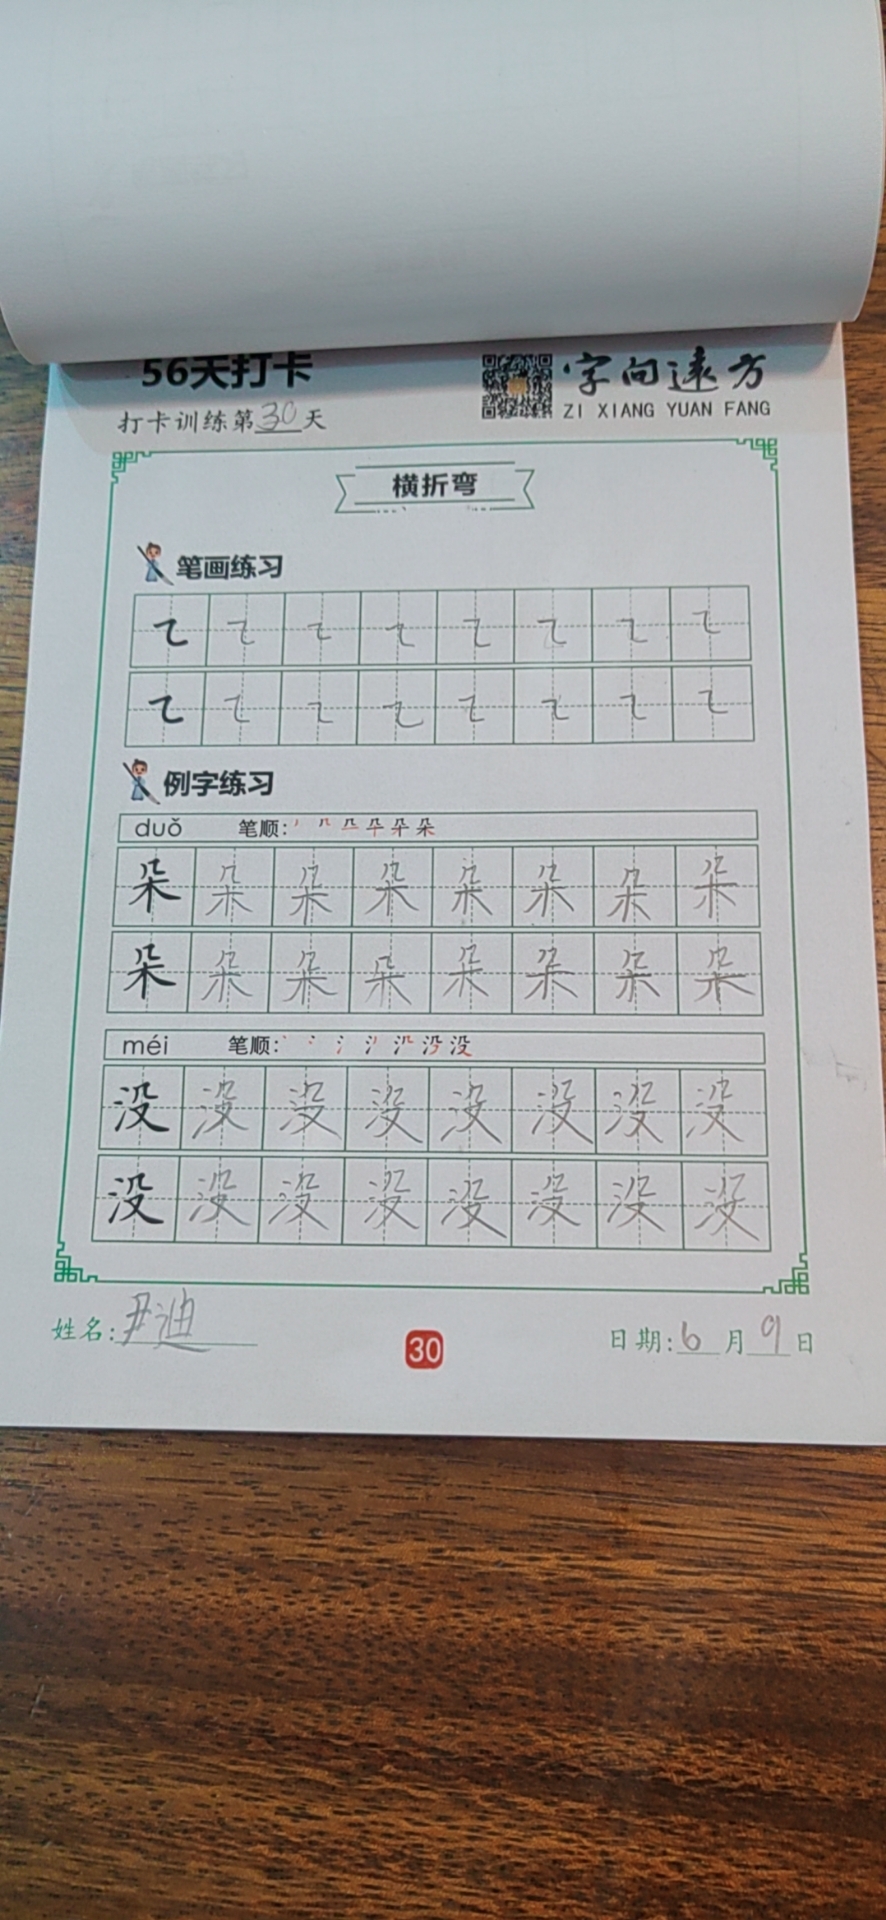 56天打卡
字向远方
ZI XIANG YUAN FANG
打卡训练第30天
横折弯
笔画练习
㇍ ㇍ ㇍ ㇍ ㇍ ㇍ ㇍ ㇍
㇍ ㇍ ㇍ ㇍ ㇍ ㇍ ㇍ ㇍
例字练习
duǒ 笔顺: 朵
朵 朵 朵 朵 朵 朵 朵 朵
朵 朵 朵 朵 朵 朵 朵 朵
méi 笔顺: 没
没 没 没 没 没 没 没 没
没 没 没 没 没 没 没 没
姓名:尹迪
30
日期:6月9日